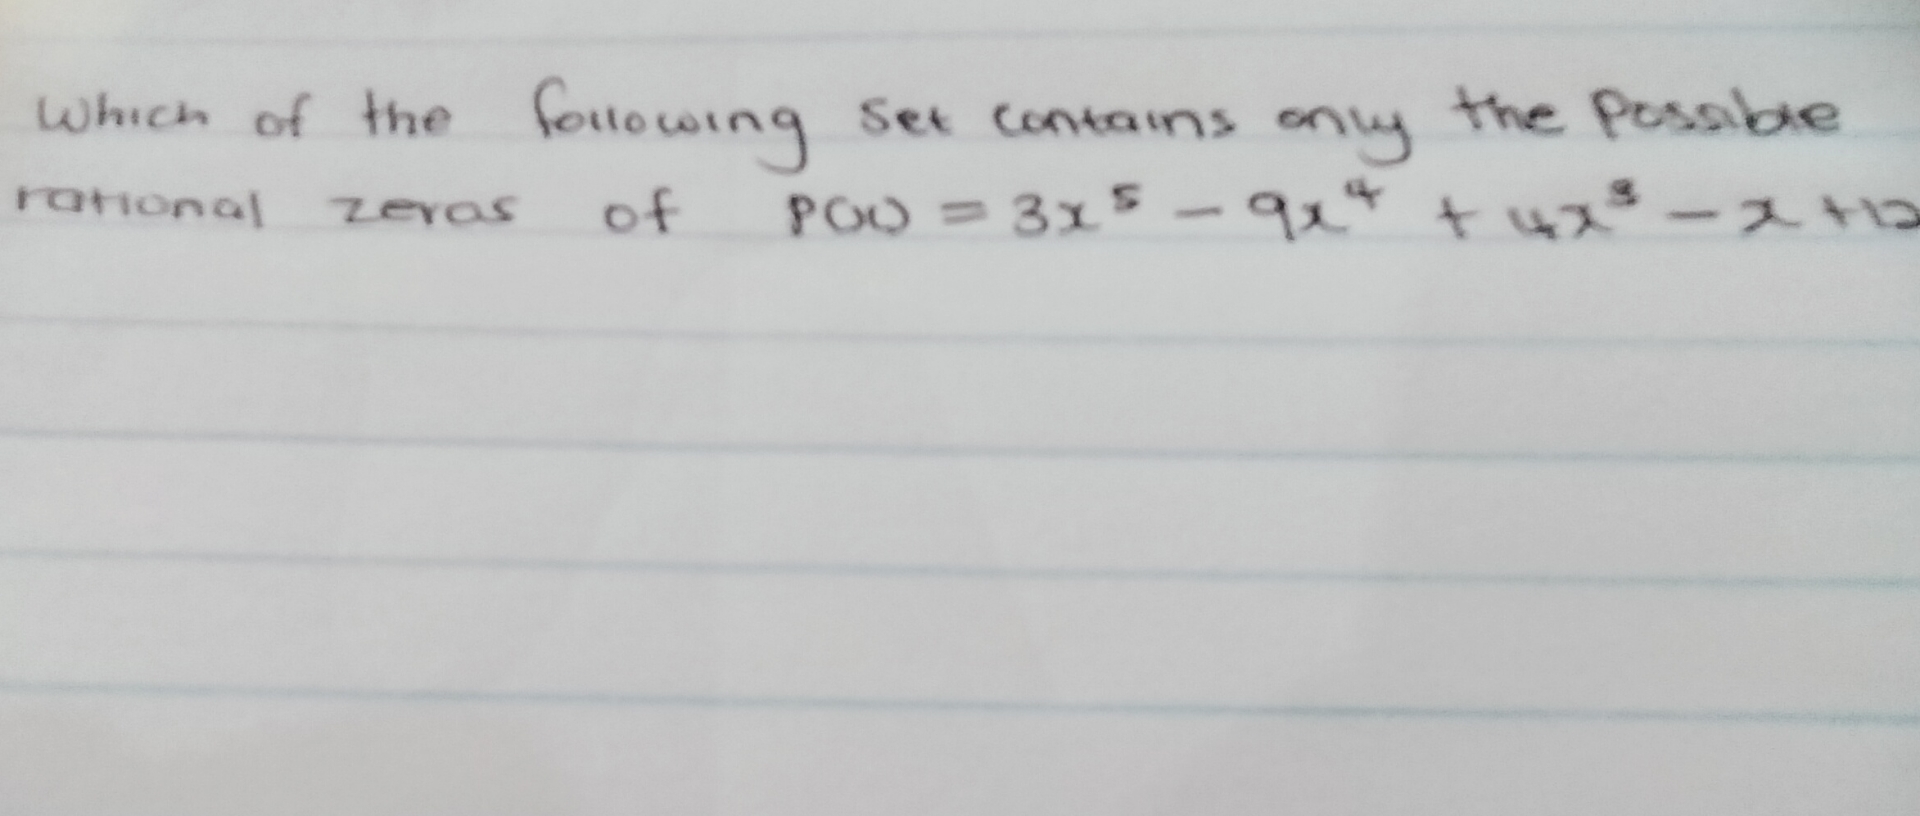 Which of the following set contains only the possible
rational zeros of P(x) = 3x⁵ - 9x⁴ + 4x³ - x + 12